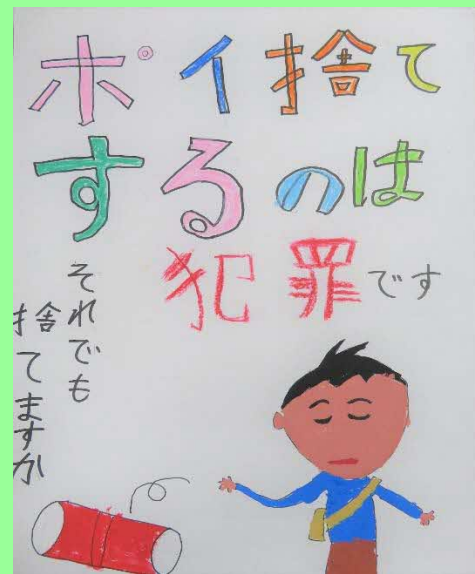 ポイ捨て
するのは
犯罪です
それでも
捨てますか